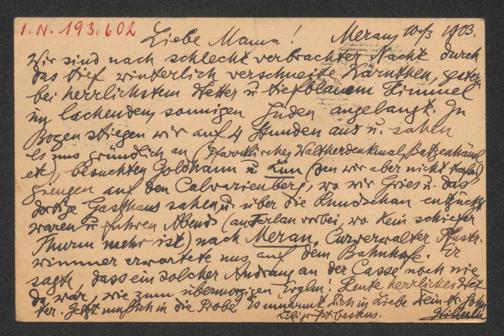 I.N. 193.602
Liebe Mama! Meran, 10/3 1903.
Wir sind nach schlecht verbrachter Nacht durch
das tief winterlich verschneite Kärnthen, gestern
bei herrlichstem Wetter u. tiefblauem Himmel
im lachenden, sonnigen Süden angelangt. In
Bozen stiegen wir auf 4 Stunden aus u. sahen
es uns gründlich an (Pfarrkirche, Waltherdenkmal, Batzenhäusl
etc), besuchten Goldhann u. (den wir aber nicht trafen)
giengen auf den Calvarienberg, wo wir Gries u. das
dortige Gasthaus sahen, u. über die Rundschau entzückt
waren u. fuhren Abends (an Terlan vorbei, wo kein schiefer
Thurm mehr ist) nach Meran. Curverwalter
erwartete uns auf dem Bahnhofe. Er
sagte, dass ein solcher Andrang an der Casse noch nie
da war, wie zum übermorgigen Ergl! Heute herrliches Wet-
ter. Jetzt muss ich in die Probe. Es umarmt Dich in Liebe Dein Sohn
Wilhelm